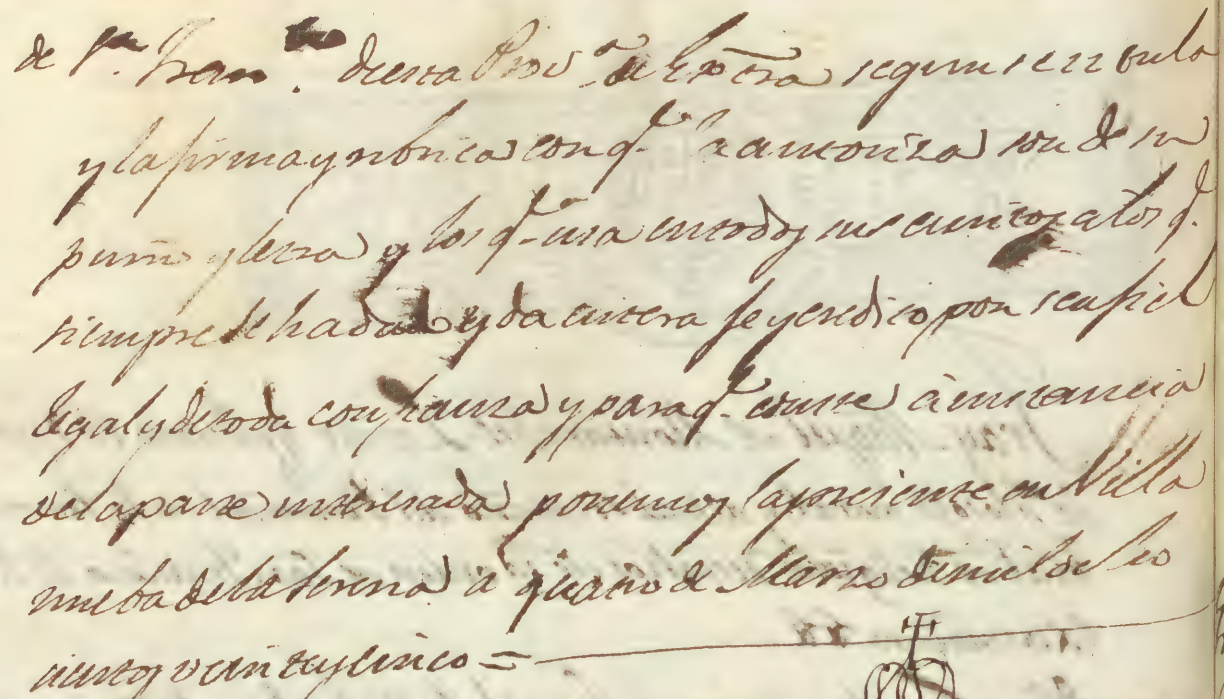 de Sn. Franco. de esta Prova. de Extra segun se titula
y la firma y rubrica con q.e la autoriza son de su
puño y letra y los q.e usa en todos sus escritos a los q.
siempre se ha dado y da entera fe y credito por ser fiel
legal y de toda confianza y para q.e conste à instancia
de la parte interesada ponemos la presente en Villa
nueba de la Serena à quatro de Marzo de mil ocho
cientos veinte y cinco =